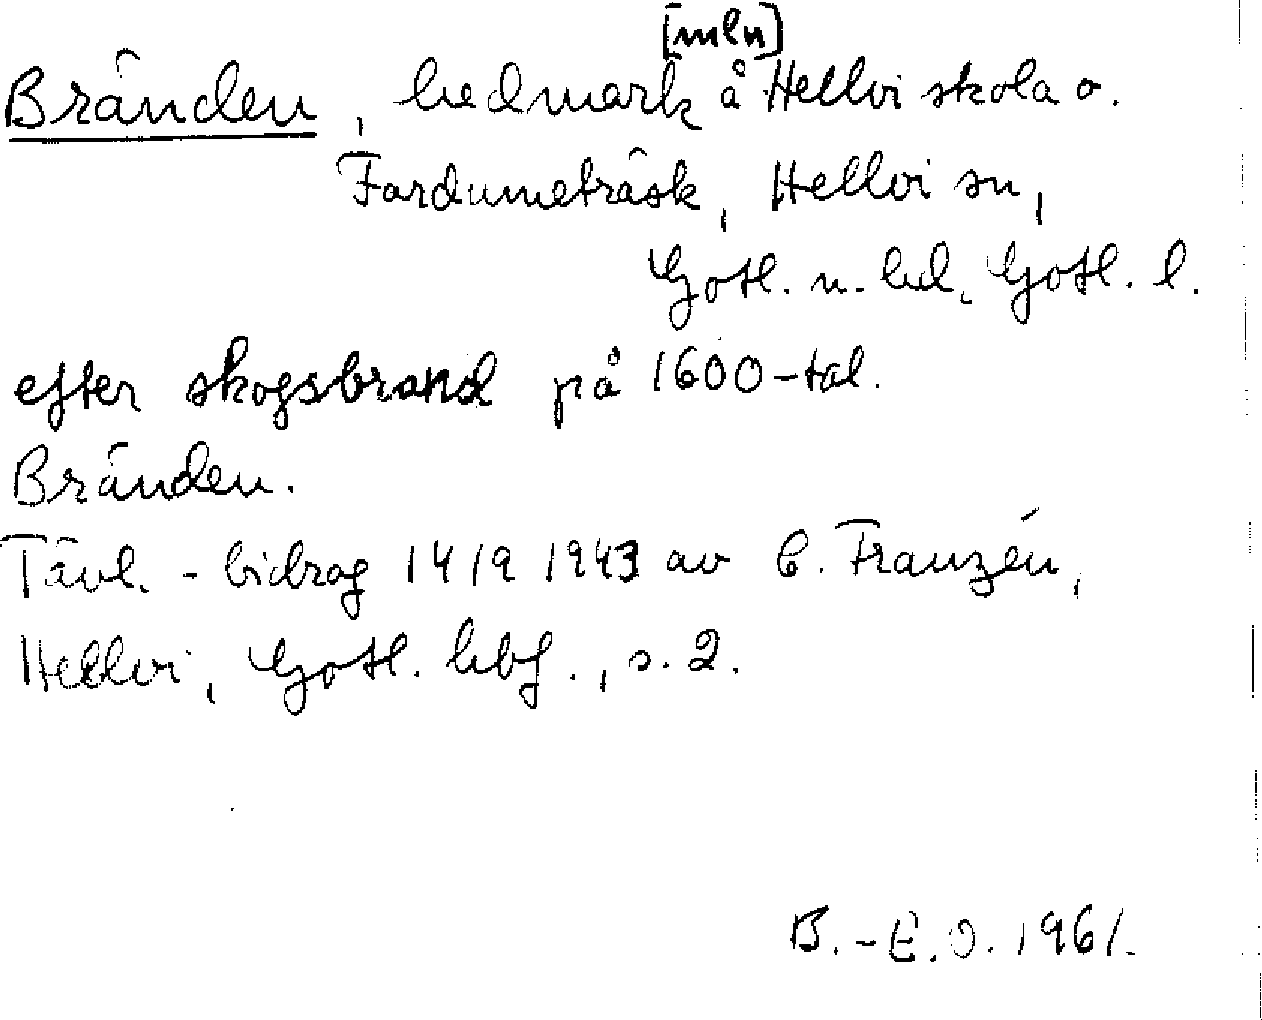 [mln]
Bränden, hedmark å Hellvi skola o.
Fardumeträsk, Hellvi sn,
Gotl. n. hd, Gotl. l.
efter skogsbrand på 1600-tal.
Bränden.
Tävl.-bidrag 14/9 1943 av C. Franzén,
Hellvi, Gotl. hbf., s. 2.
B.-E. O. 1961.